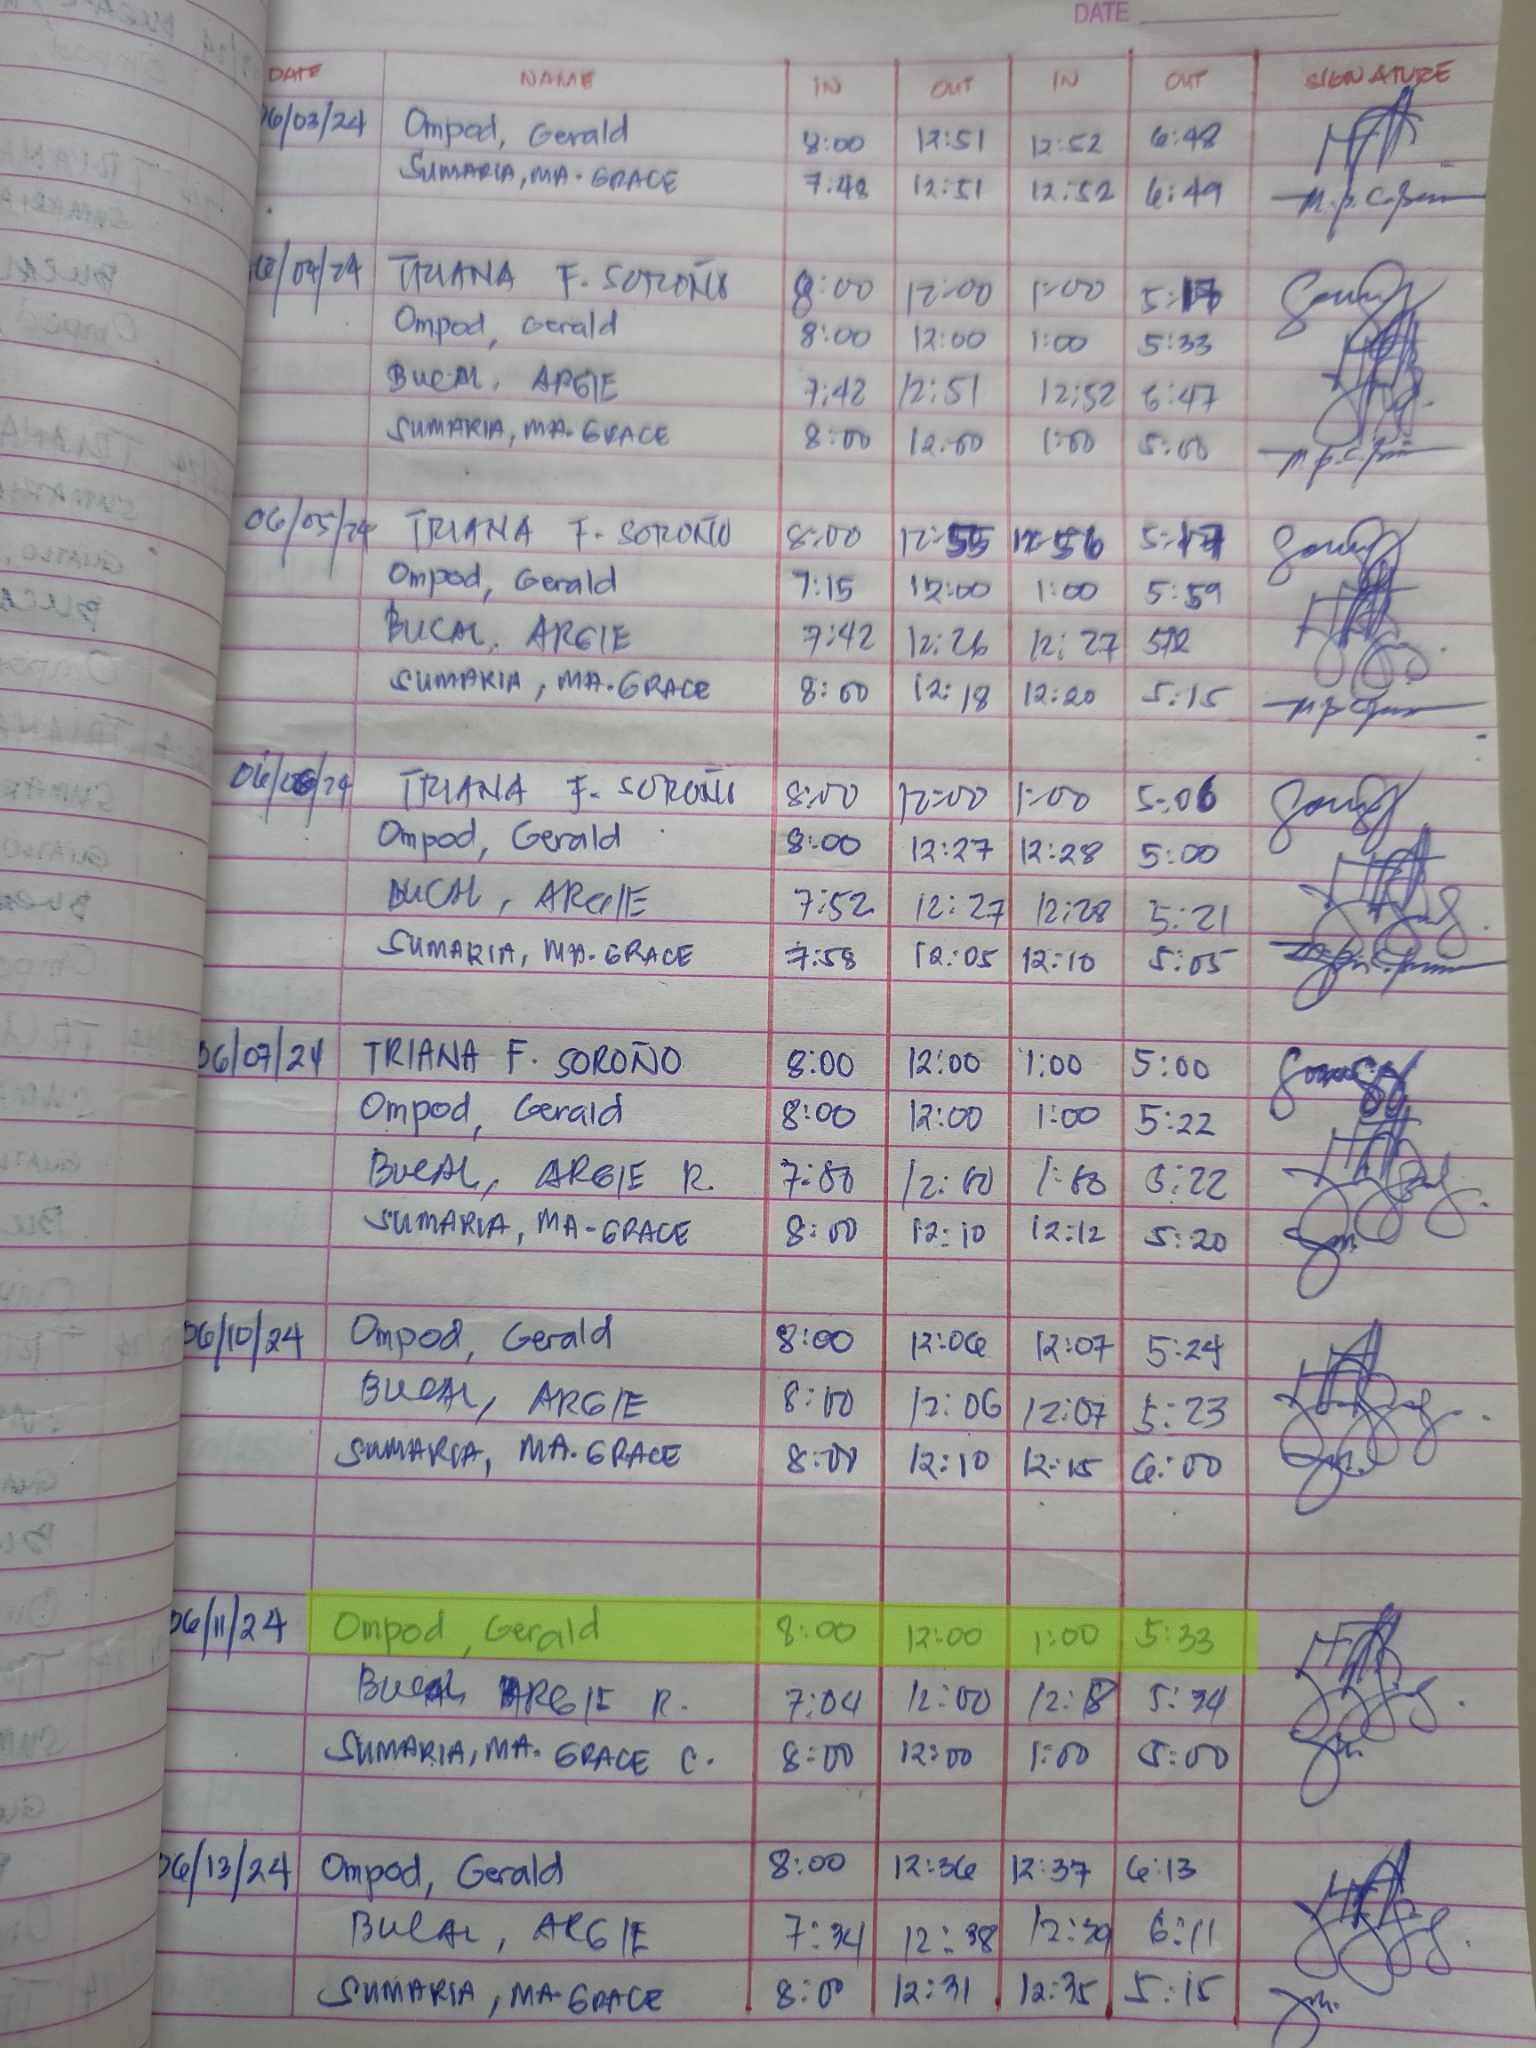 DATE
DATE NAME IN OUT IN OUT SIGNATURE
06/03/24 Ompod, Gerald 8:00 12:51 12:52 6:48
SUMARIA, MA. GRACE 7:48 12:51 12:52 6:49
06/04/24 TRIANA F. SOROÑO 8:00 12:00 1:00 5:17
Ompod, Gerald 8:00 12:00 1:00 5:33
BUCAL, ARGIE 7:42 12:51 12:52 6:47
SUMARIA, MA. GRACE 8:00 12:00 1:00 5:00
06/05/24 TRIANA F. SOROÑO 8:00 12:55 12:56 5:17
Ompod, Gerald 7:15 12:00 1:00 5:59
BUCAL, ARGIE 7:42 12:26 12:27
SUMARIA, MA. GRACE 8:00 12:18 12:20 5:15
06/06/24 TRIANA F. SOROÑO 8:00 12:00 1:00 5:06
Ompod, Gerald 8:00 12:27 12:28 5:00
BUCAL, ARGIE 7:52 12:27 12:28 5:21
SUMARIA, MA. GRACE 7:58 12:05 12:10 5:05
06/07/24 TRIANA F. SOROÑO 8:00 12:00 1:00 5:00
Ompod, Gerald 8:00 12:00 1:00 5:22
BUCAL, ARGIE R. 12:00 1:00 5:22
SUMARIA, MA. GRACE 8:00 12:10 12:12 5:20
06/10/24 Ompod, Gerald 8:00 12:06 12:07 5:24
BUCAL, ARGIE 8:00 12:06 12:07 5:23
SUMARIA, MA. GRACE 8:00 12:10 12:15 6:00
06/11/24 Ompod, Gerald 8:00 12:00 1:00 5:33
BUCAL ARGIE R. 7:04 12:00 12:18 5:34
SUMARIA, MA. GRACE C. 8:00 12:00 1:00 5:00
06/13/24 Ompod, Gerald 8:00 12:36 12:37 6:13
BUCAL, ARGIE 7:34 12:38 12:39 6:11
SUMARIA, MA. GRACE 8:00 12:31 12:35 5:15